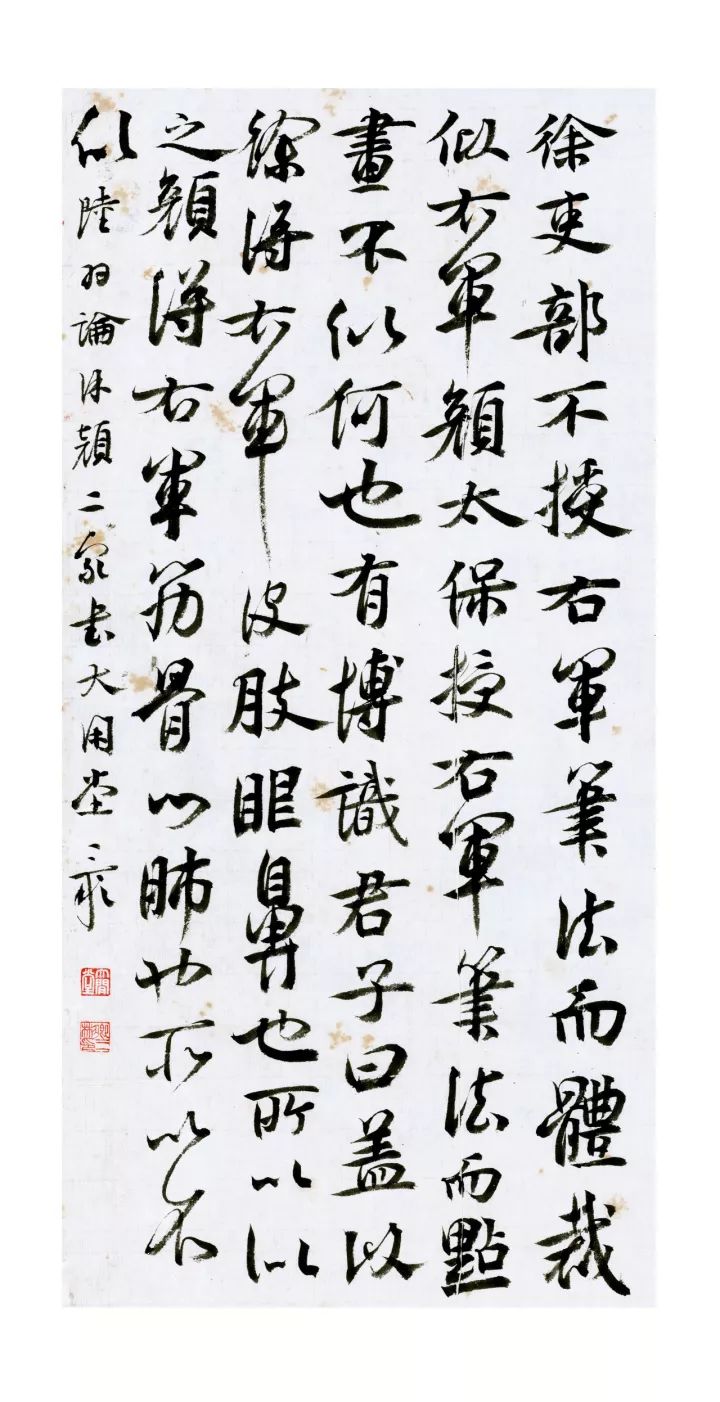 徐吏部不授右軍筆法而體裁
似右軍顏太保授右軍筆法而點
畫不似何也有博識君子曰盖以
徐得右軍皮肢眼鼻也所以似
之顏得右軍筋骨心肺也所以不
似陸羽論徐顏二家書大用堂